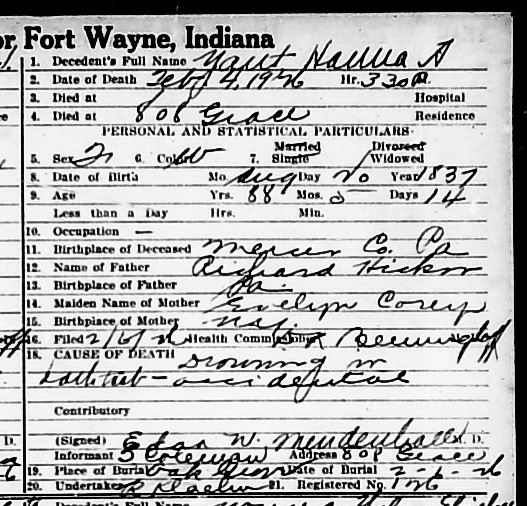 or Fort Wayne, Indiana
1. Decedent's Full Name Yant Hanna A
2. Date of Death Feby 4, 1926 Hr. 3 30 P.
3. Died at Hospital
4. Died at 808 Grace Residence
PERSONAL AND STATISTICAL PARTICULARS
5. Sex F 6. Color W 7. Married Single Divorced Widowed
8. Date of Birth Mo. Aug Day 20 Year 1837
9. Age Yrs. 88 Mos. 5 Days 14
Less than a Day Hrs. Min.
10. Occupation —
11. Birthplace of Deceased Mercer Co. Pa
12. Name of Father Richard Hickox
13. Birthplace of Father Pa.
14. Maiden Name of Mother Evelyn Corey
15. Birthplace of Mother
16. Filed 2/6/26 Health Commissioner
18. CAUSE OF DEATH Drowning in
bath tub — accidental
Contributory
(Signed) Edgar W. Mendenhall M. D.
Informant S Coleman Address 808 Grace
19. Place of Burial Date of Burial 2-6-26
20. Undertaker 21. Registered No. 126
Decedent's Full Name